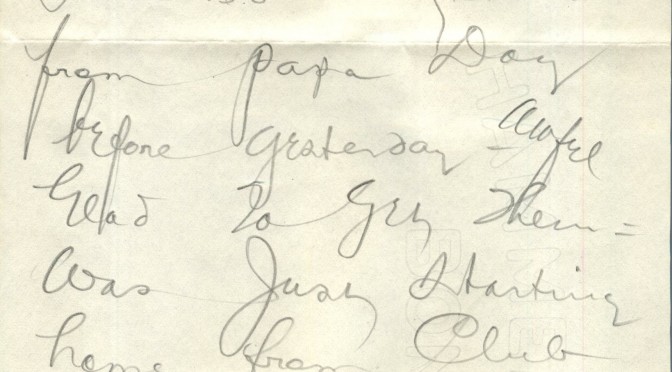 from papa Day
before yesterday - awful
Glad to Get them =
Was Just Starting
home from Club